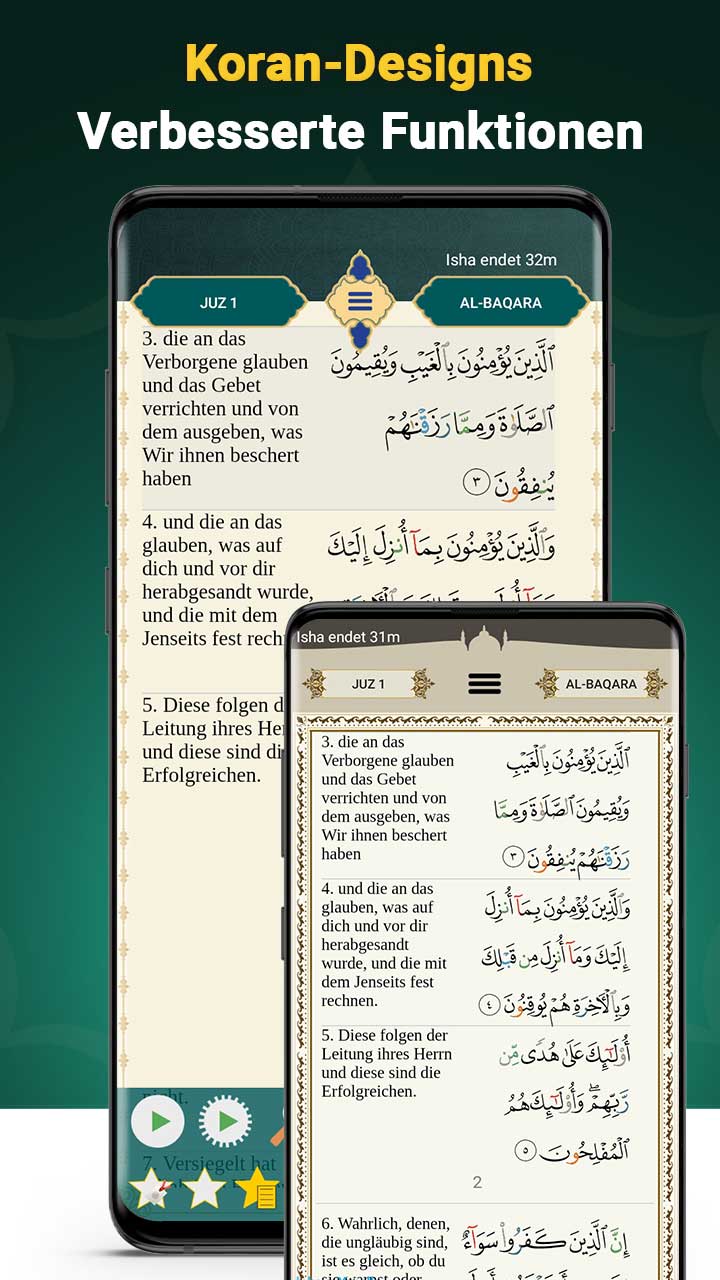 Koran-Designs
Verbesserte Funktionen
Isha endet 32m
JUZ 1
AL-BAQARA
3. die an das
Verborgene glauben
und das Gebet
verrichten und von
dem ausgeben, was
Wir ihnen beschert
haben
ٱلَّذِينَ يُؤْمِنُونَ بِٱلْغَيْبِ وَيُقِيمُونَ
ٱلصَّلَوٰةَ وَمِمَّا رَزَقْنَٰهُمْ
يُنفِقُونَ ٣
4. und die an das
glauben, was auf
dich und vor dir
herabgesandt wurde,
und die mit dem
Jenseits fest rech
وَٱلَّذِينَ يُؤْمِنُونَ بِمَآ أُنزِلَ إِلَيْكَ
5. Diese folgen d
Leitung ihres He
und diese sind di
Erfolgreichen.
nicht.
7. Versiegelt hat
Isha endet 31m
JUZ 1
AL-BAQARA
3. die an das
Verborgene glauben
und das Gebet
verrichten und von
dem ausgeben, was
Wir ihnen beschert
haben
ٱلَّذِينَ يُؤْمِنُونَ بِٱلْغَيْبِ
وَيُقِيمُونَ ٱلصَّلَوٰةَ وَمِمَّا
رَزَقْنَٰهُمْ يُنفِقُونَ ٣
4. und die an das
glauben, was auf
dich und vor dir
herabgesandt
wurde, und die mit
dem Jenseits fest
rechnen.
وَٱلَّذِينَ يُؤْمِنُونَ بِمَآ أُنزِلَ
إِلَيْكَ وَمَآ أُنزِلَ مِن قَبْلِكَ
وَبِٱلْءَاخِرَةِ هُمْ يُوقِنُونَ ٤
5. Diese folgen der
Leitung ihres Herrn
und diese sind die
Erfolgreichen.
أُو۟لَٰٓئِكَ عَلَىٰ هُدًى مِّن
رَّبِّهِمْ ۖ وَأُو۟لَٰٓئِكَ هُمُ
ٱلْمُفْلِحُونَ ٥
2
6. Wahrlich, denen,
die ungläubig sind,
ist es gleich, ob du
sie warnst oder
إِنَّ ٱلَّذِينَ كَفَرُوا۟ سَوَآءٌ